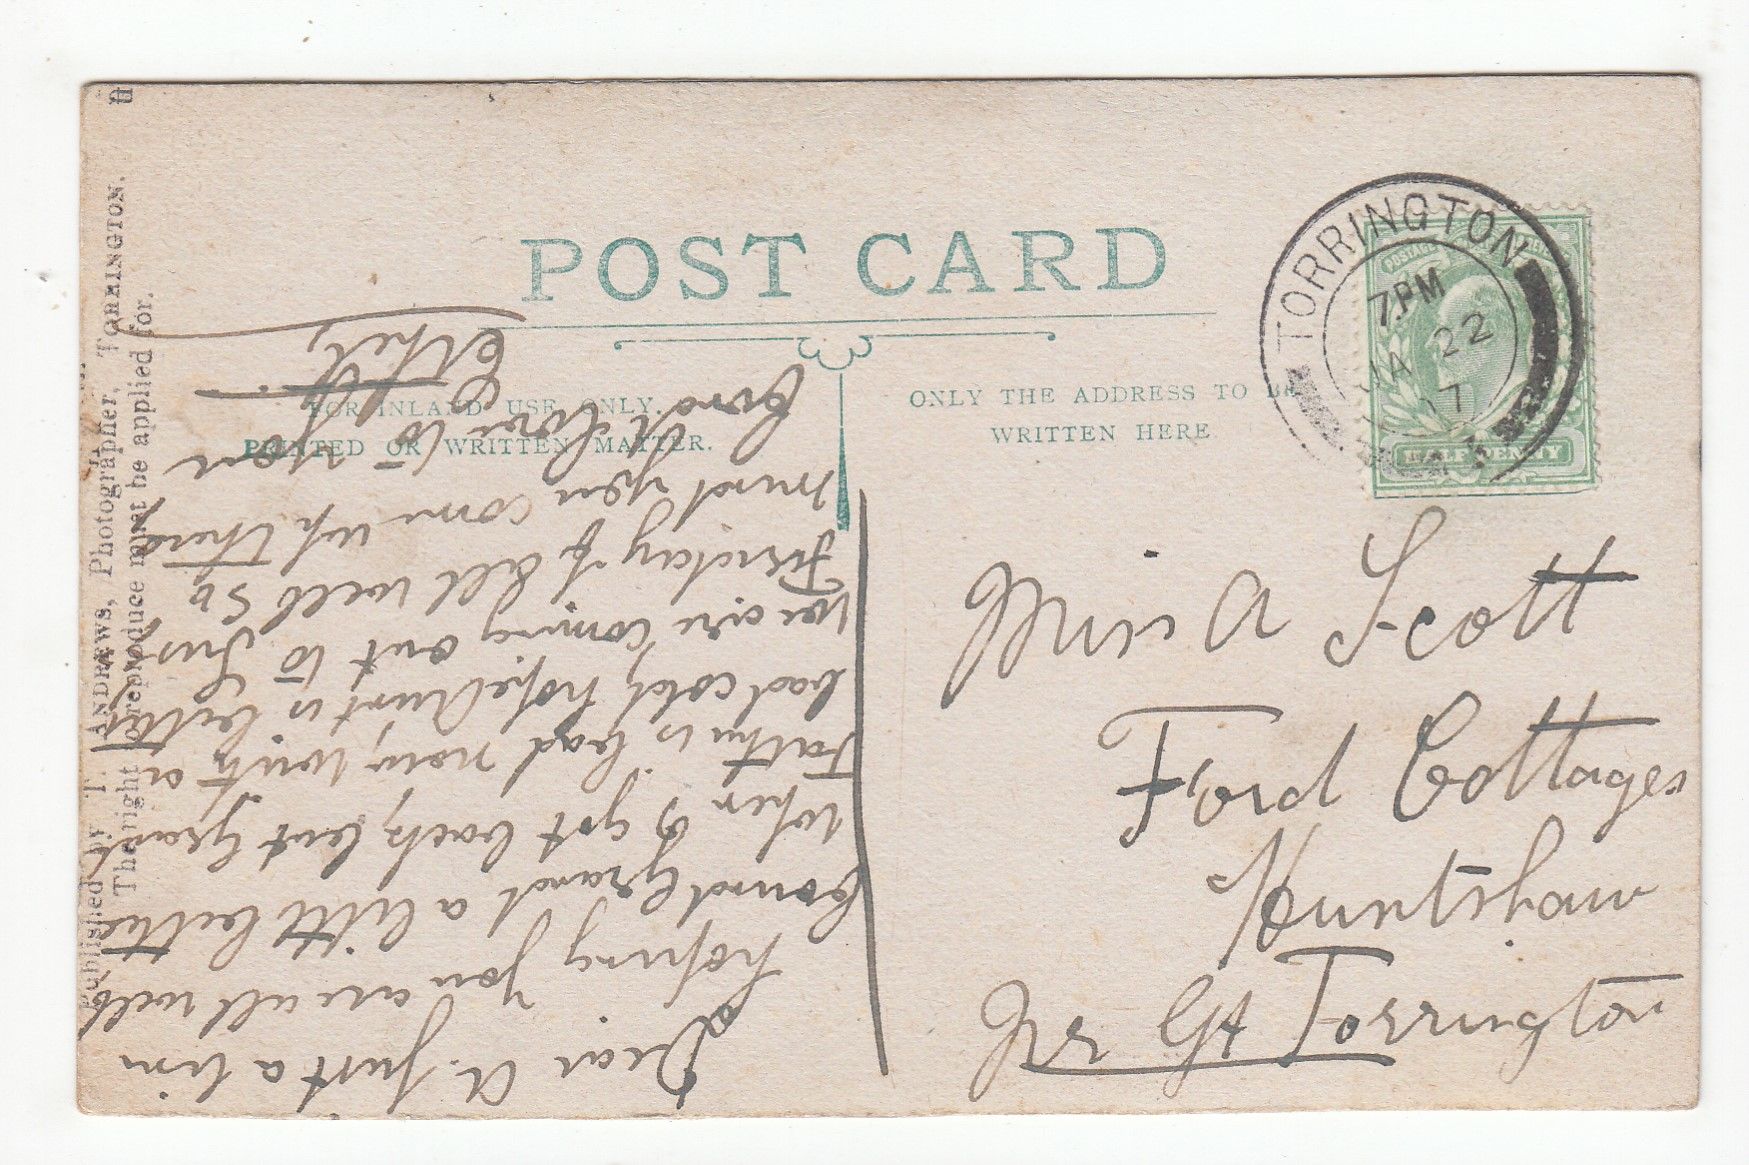 POST CARD
FOR INLAND USE ONLY.
PRINTED OR WRITTEN MATTER.
ONLY THE ADDRESS TO BE
WRITTEN HERE
TORRINGTON
7.PM
JA 22
07
POSTAGE
HALFPENNY
Miss A Scott
Ford Cottages
Huntsham
Nr Gt Torrington
Dear A. Just a line
hoping you are all well
found Grand a little better
when I got back, but Grand
Father is bad now, with a
bad cold, hope Aunt is better
we are coming out to
Thursday if all well so
mind you come up there
Good love to you
Ethel.
Published by T. ANDREWS, Photographer, TORRINGTON.
The right to reproduce must be applied for.